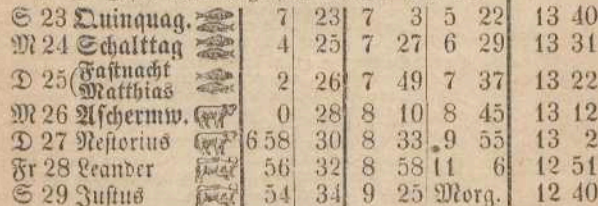 S 23 Quinquag. 7 23 7 3 5 22 13 40
M 24 Schalttag 4 25 7 27 6 29 13 31
D 25 (Fastnacht Matthias 2 26 7 49 7 37 13 22
M 26 Aschermw. 0 28 8 10 8 45 13 12
D 27 Nestorius 6 58 30 8 33 9 55 13 2
Fr 28 Leander 56 32 8 58 11 6 12 51
S 29 Justus 54 34 9 25 Morg. 12 40